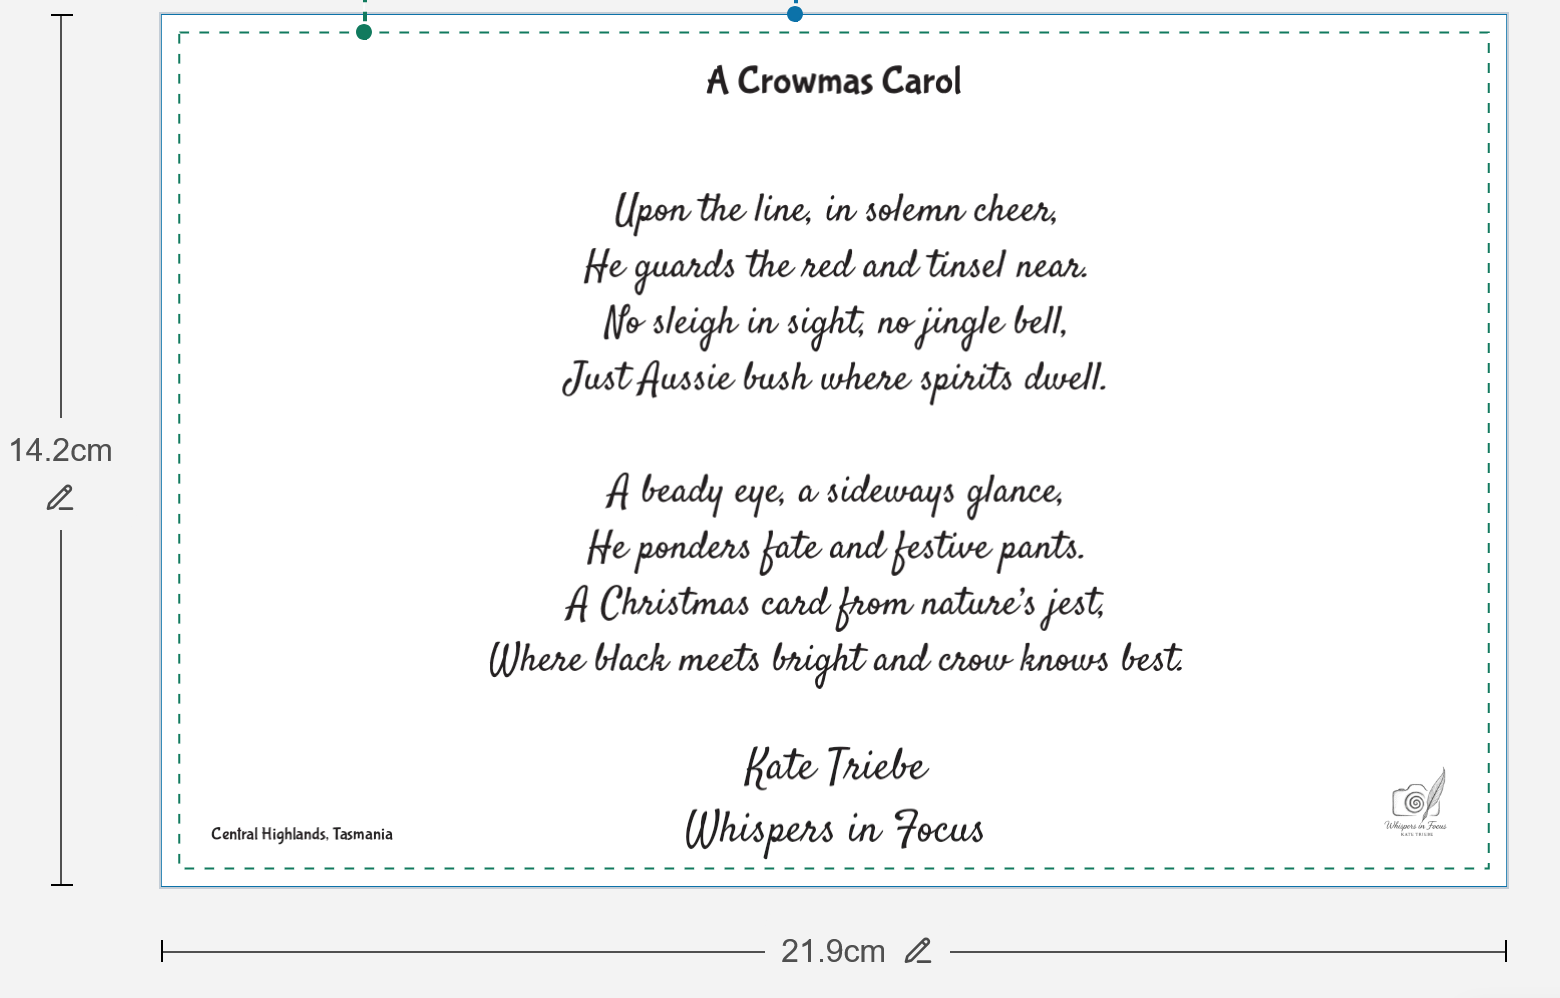 A Crowmas Carol
Upon the line, in solemn cheer,
He guards the red and tinsel near.
No sleigh in sight, no jingle bell,
Just Aussie bush where spirits dwell.
A beady eye, a sideways glance,
He ponders fate and festive pants.
A Christmas card from nature's jest,
Where black meets bright and crow knows best.
Kate Triebe
Whispers in Focus
Central Highlands, Tasmania
Whispers in Focus
KATE TRIEBE
14.2cm
21.9cm